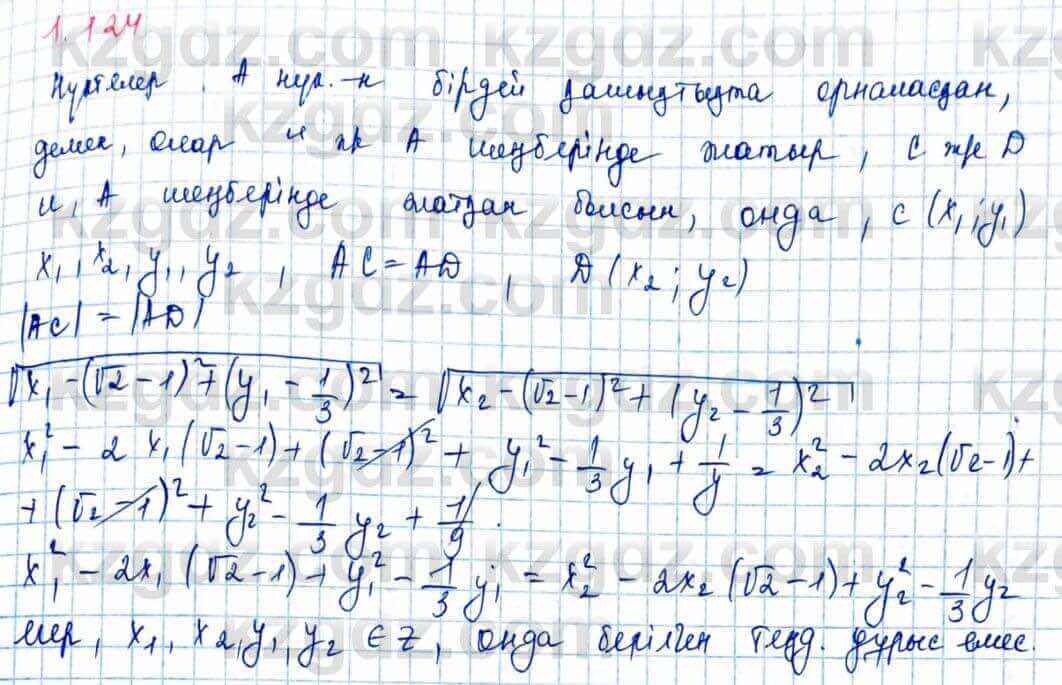 1.124
Нүктелер, А нүк.-н бірдей қашықтықта орналасқан,
демек, олар және А шеңберінде жатыр, С және D
А шеңберінде жатқан болсын, онда, C(x₁;y₁)
x₁, x₂, y₁, y₂, AC=AD, D(x₂; y₂)
|AC| = |AD|
√x₁-(√2-1)²+(y₁-1/3)² = √x₂-(√2-1)²+(y₂-1/3)²
x₁²-2x₁(√2-1)+(√2-1)²+y₁²-1/3y₁+1/y = x₂²-2x₂(√2-1)+
+(√2-1)²+y₂²-1/3y₂+1/9.
x₁²-2x₁(√2-1)+y₁²-1/3y₁ = x₂²-2x₂(√2-1)+y₂²-1/3y₂
егер, x₁, x₂, y₁, y₂ ∈ Z, онда берілген теңд. дұрыс емес.
kzgdz.com